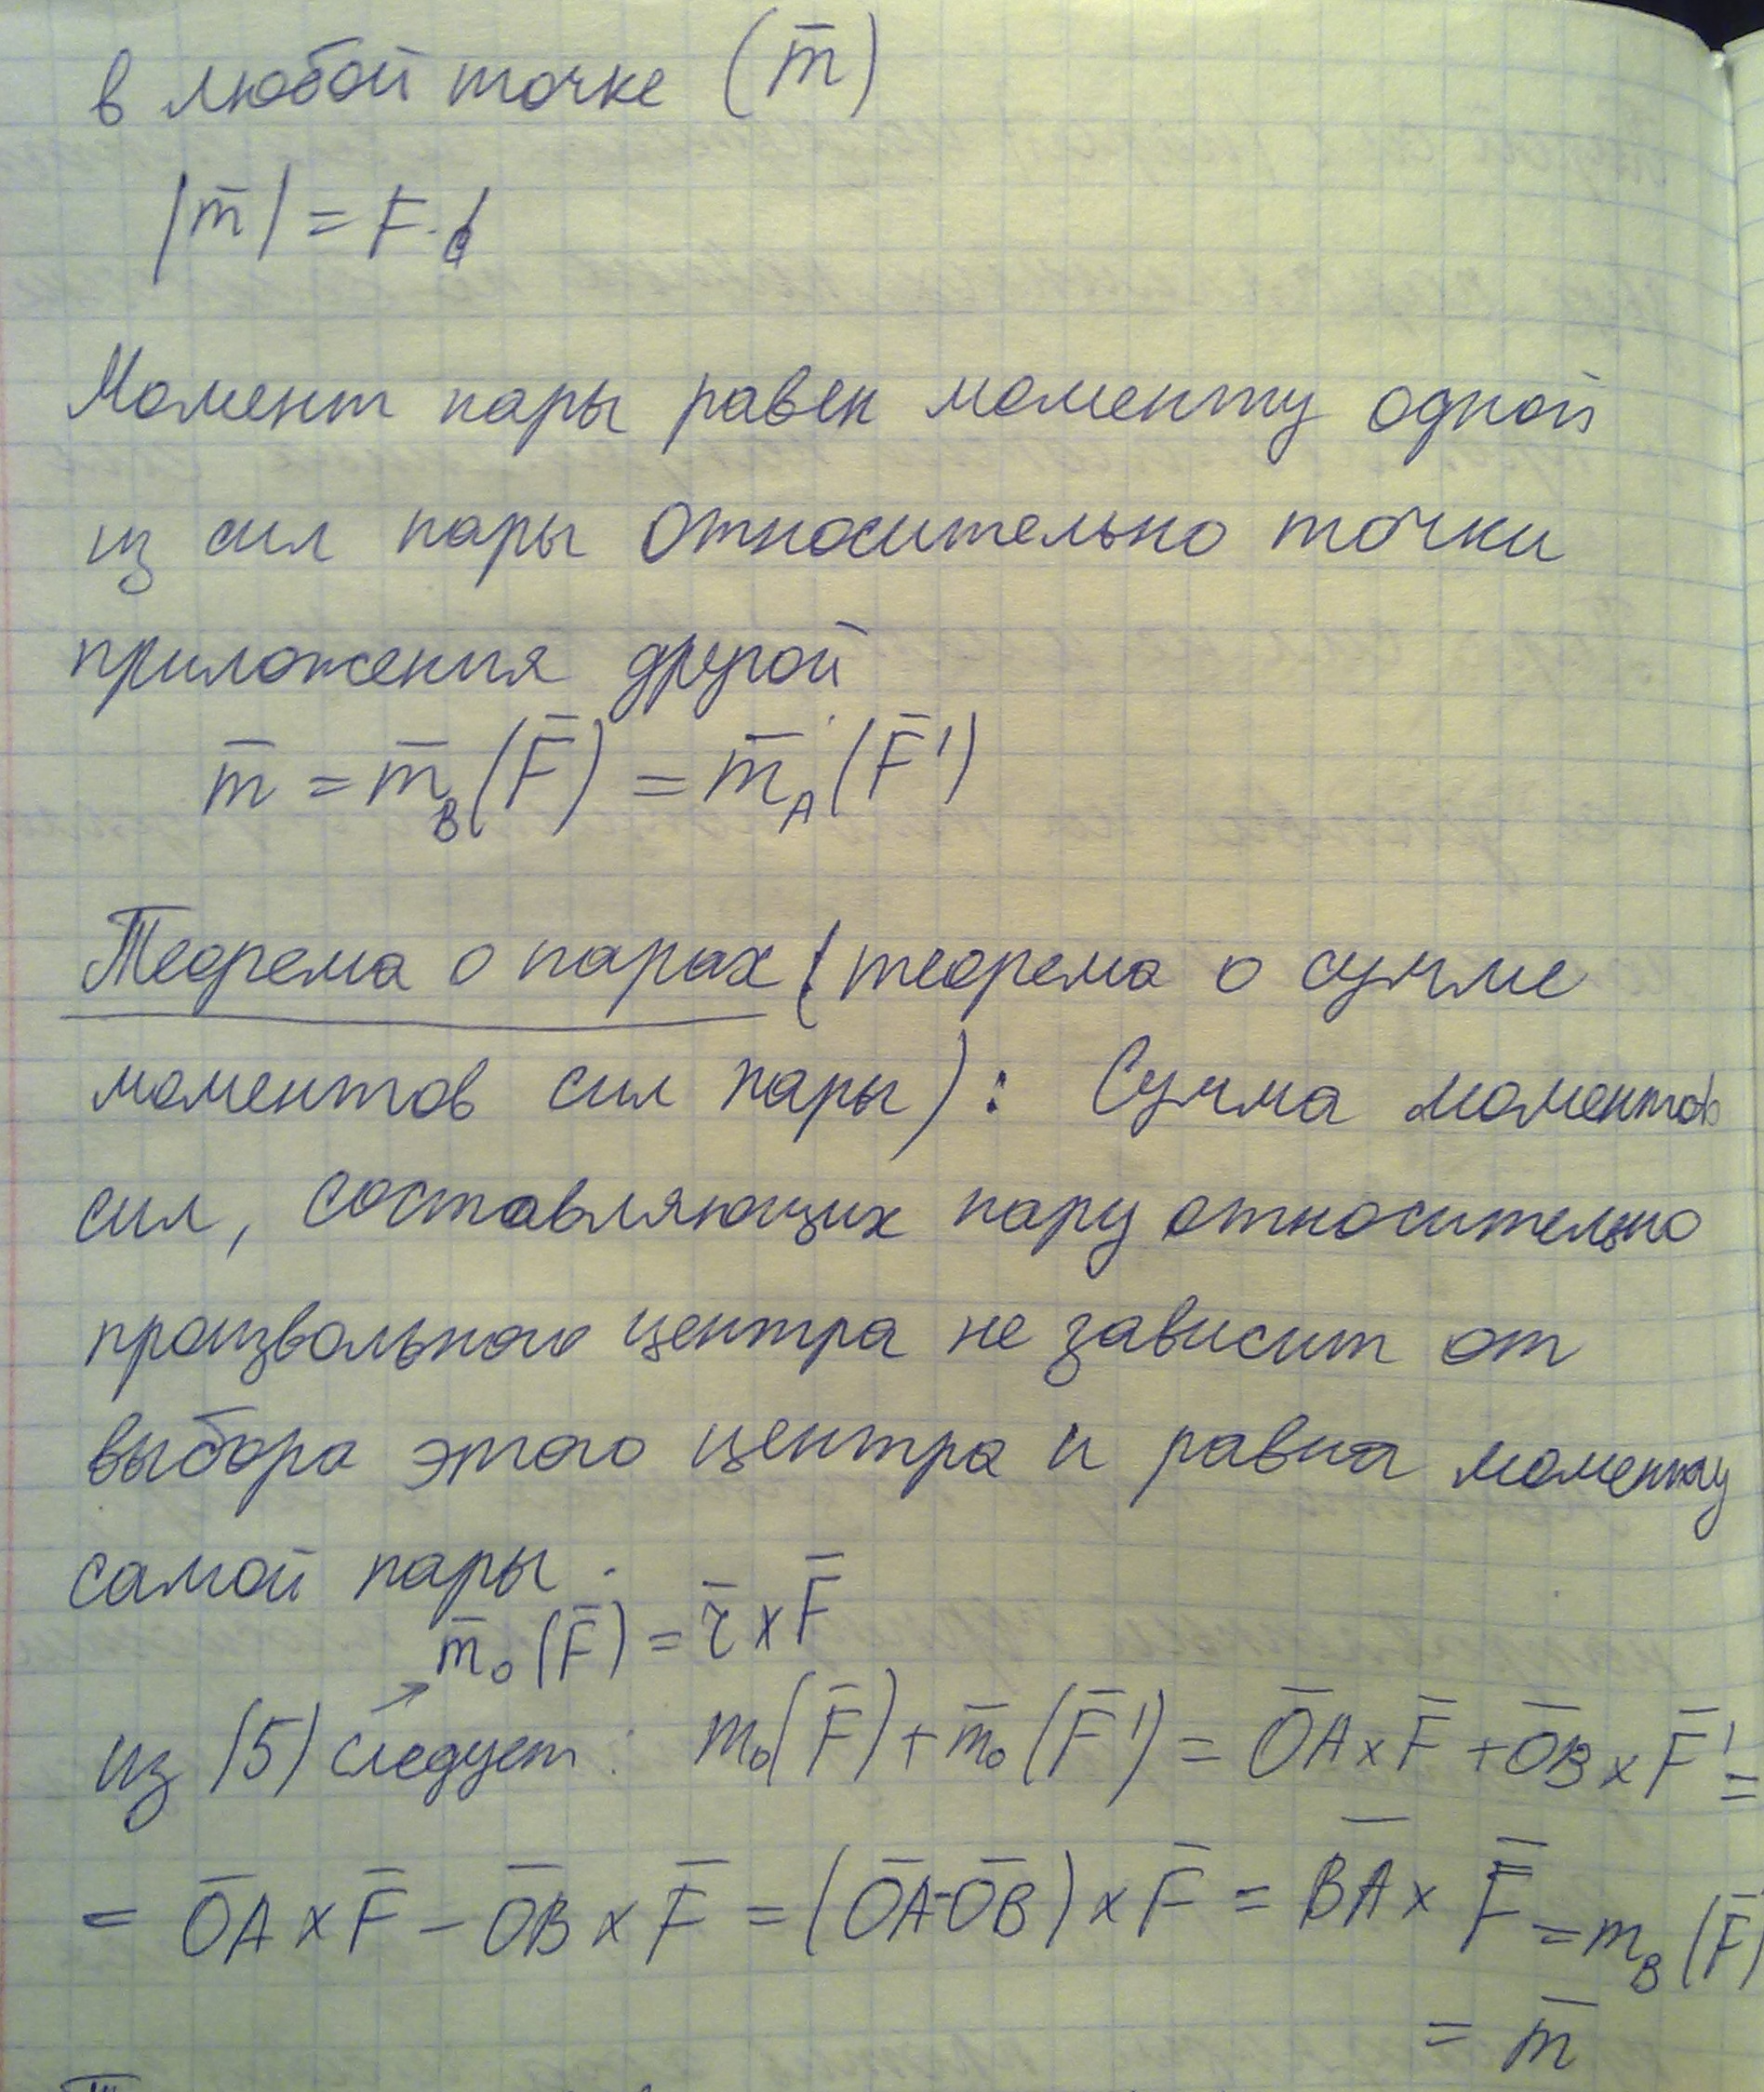 в любой точке (m̄)
|m̄| = F·d
Момент пары равен моменту одной
из сил пары относительно точки
приложения другой
m̄ = m̄_B(F̄) = m̄_A(F̄')
Теорема о парах (теорема о сумме
моментов сил пары): Сумма моментов
сил, составляющих пару относительно
произвольного центра не зависит от
выбора этого центра и равна моменту
самой пары.
m̄₀(F̄) = r̄ × F̄
из (5) следует: m₀(F̄) + m̄₀(F̄') = O̅A̅ × F̄ + O̅B̅ × F̄' =
= O̅A̅ × F̄ − O̅B̅ × F̄ = (O̅A̅ - O̅B̅) × F̄ = B̅A̅ × F̄ = m_B(F̄)
= m̄